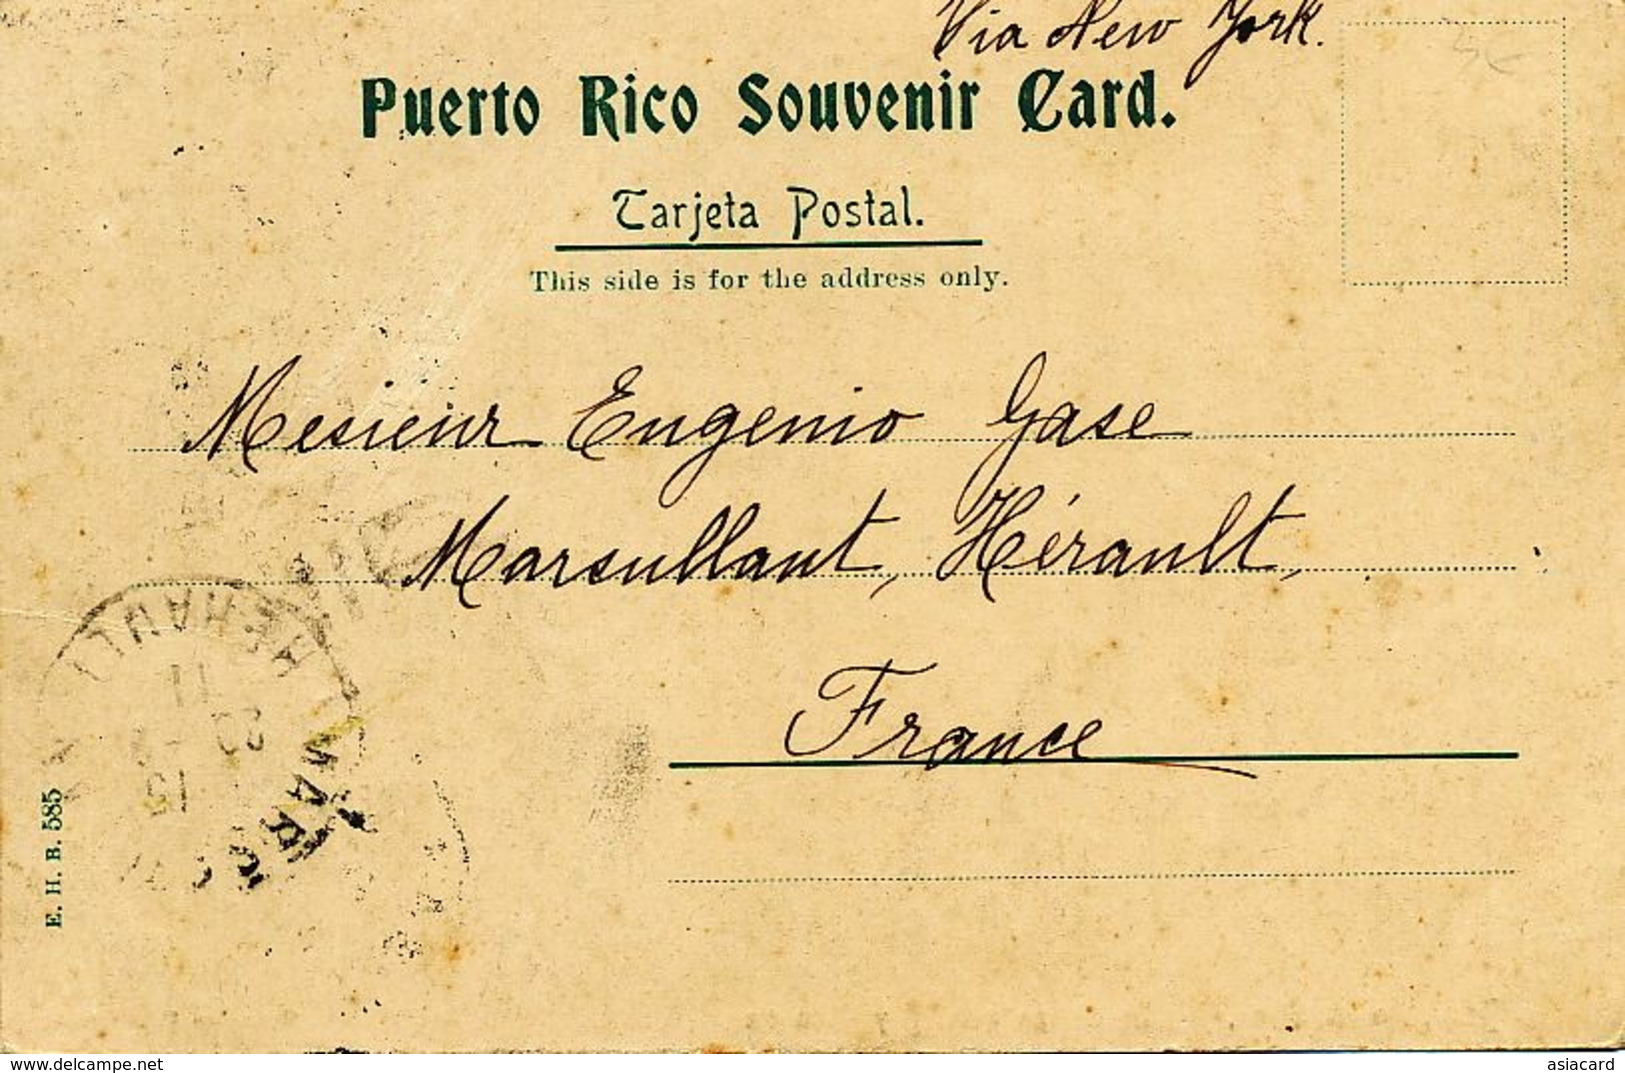 Via New York.
Puerto Rico Souvenir Card.
Tarjeta Postal.
This side is for the address only.
Mesieur Eugenio Gase
Marsullant, Hérault,
France
HÉRAULT
11
E. H. B. 585
www.delcampe.net
asiacard